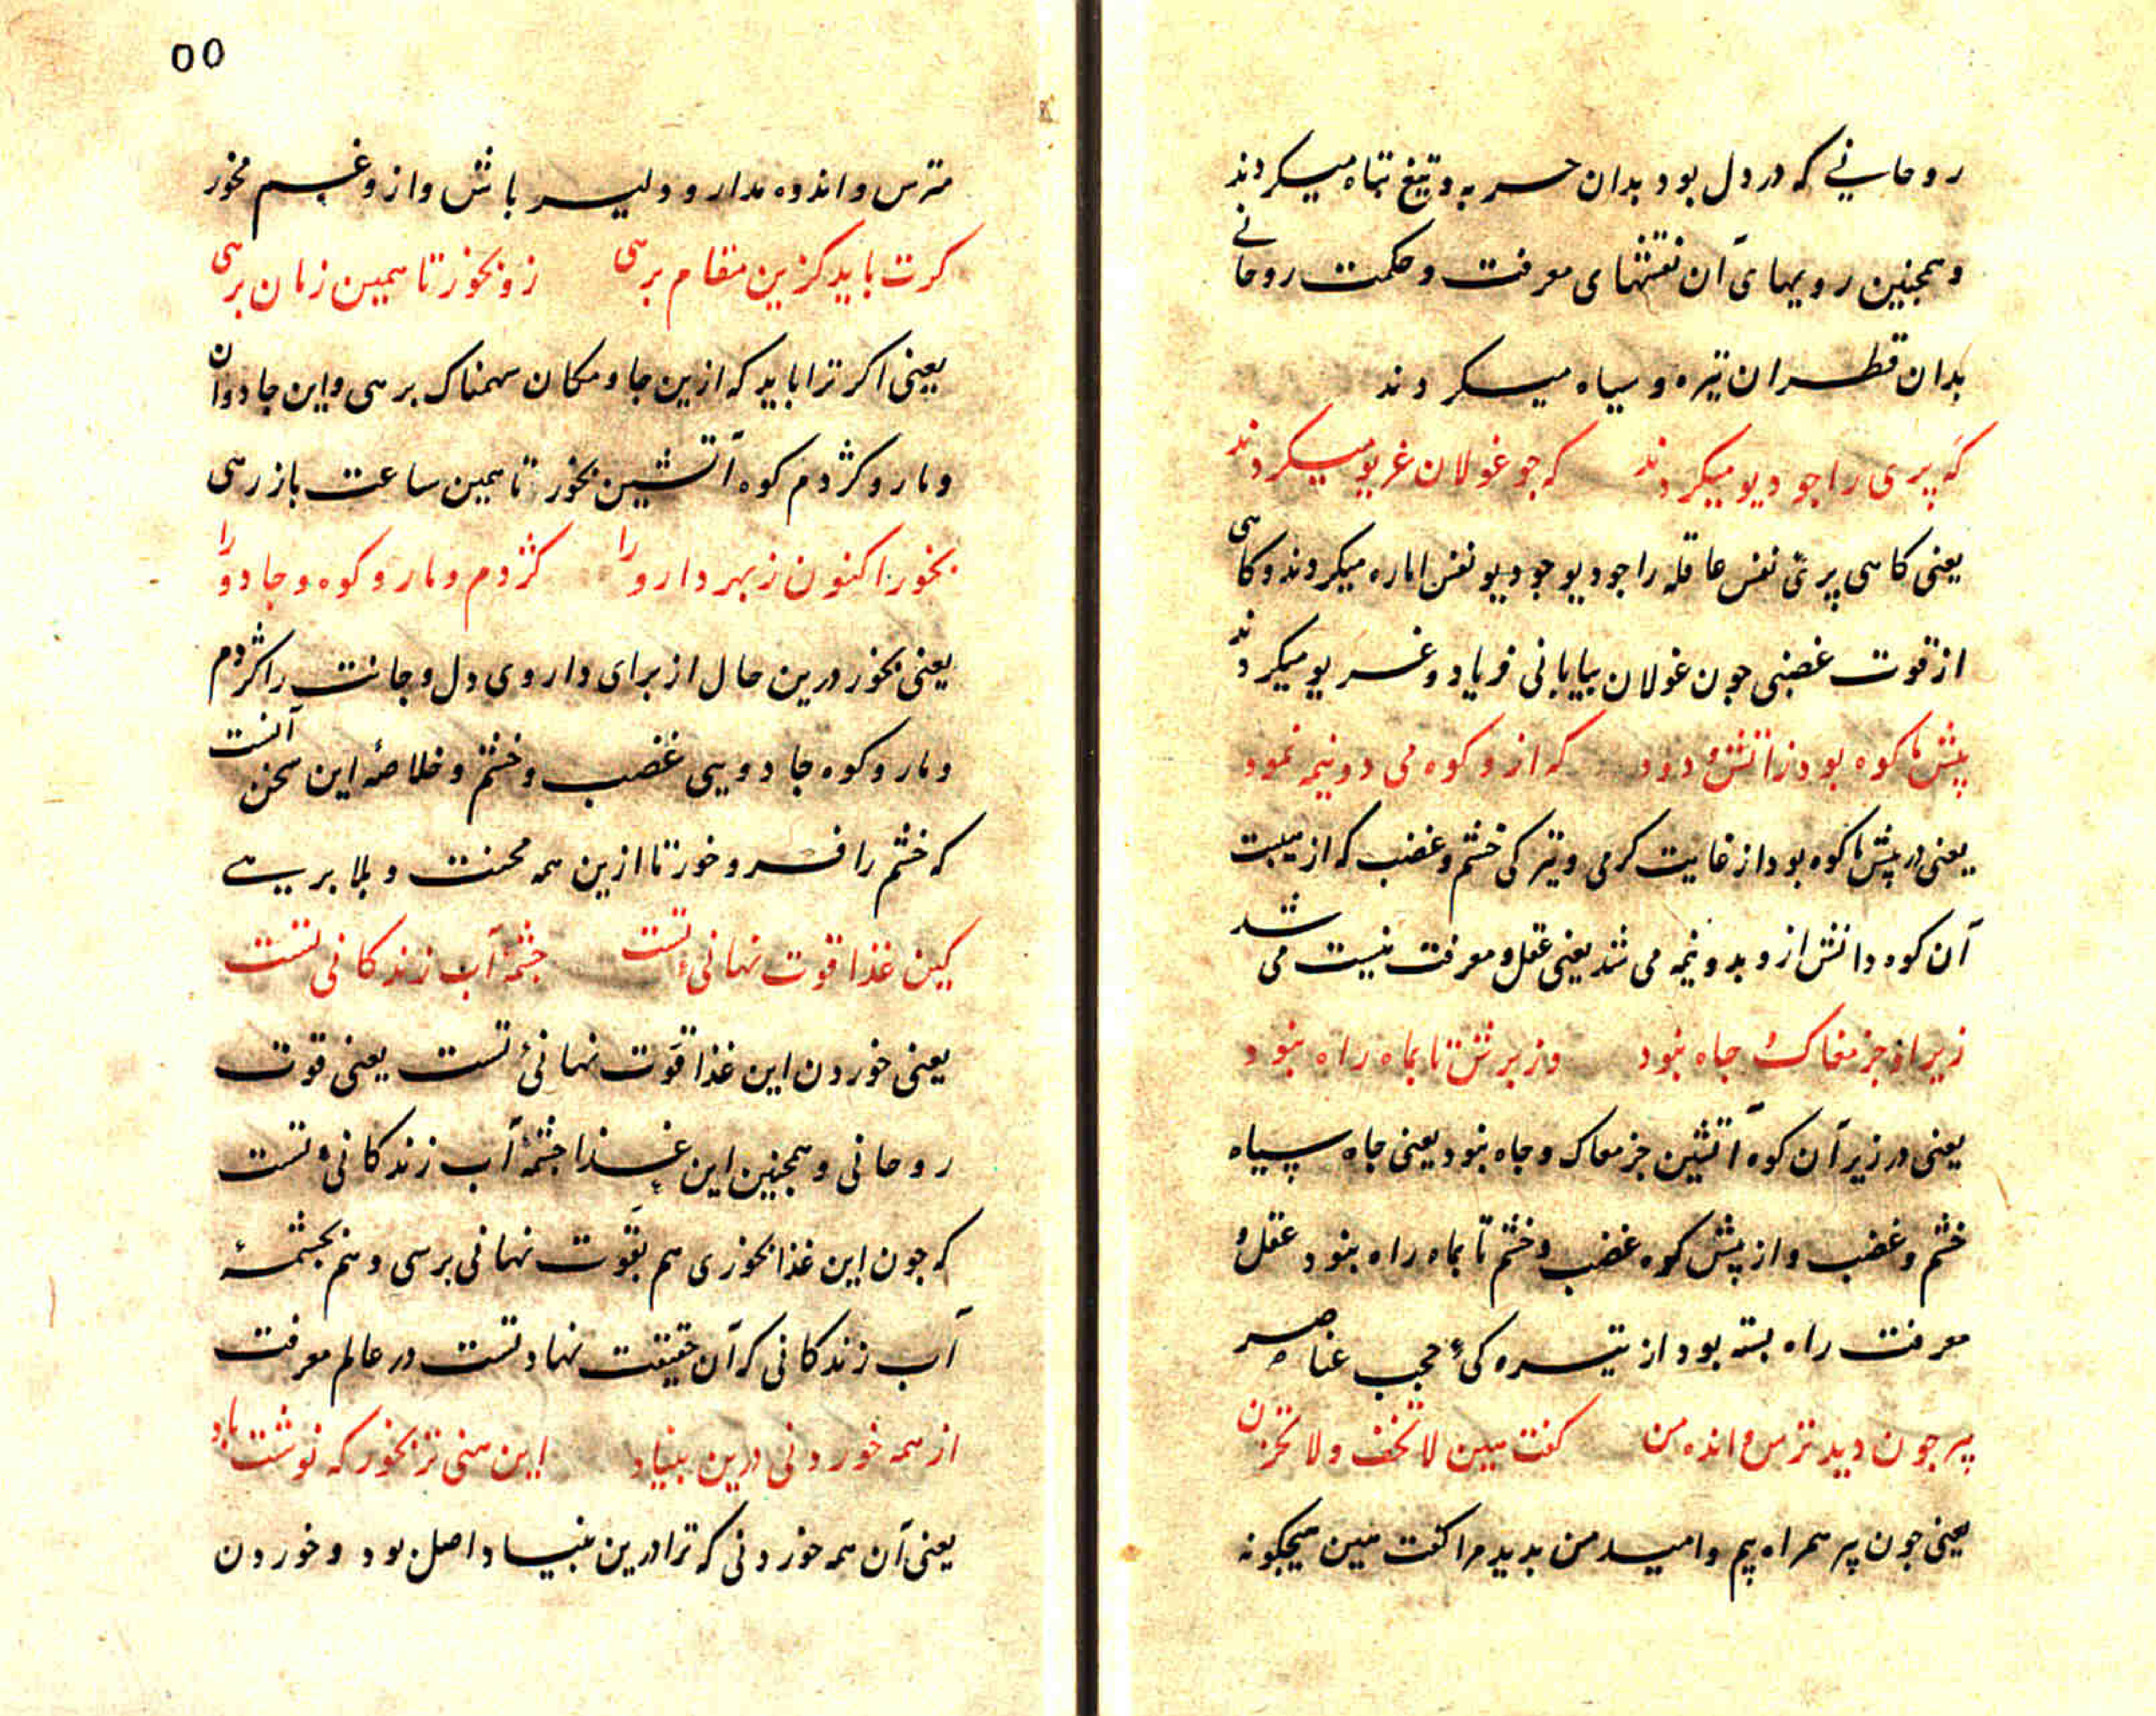 روحانیے که در دل بود بدان حربه و تیغ تباه میکردند
و همجنین رویهای آن نقشهای معرفت و حکمت روحانے
بدان قطران تیره و سیاه میکردند
که پری را جو دیو میکردند که جو غولان غریو میکردند
یعنی کاهی پرئ نفس عاقله را جو دیو جو دیو نفس اماره میکردند و کاهی
از قوت غضبی جون غولان بیابانی فریاد و غریو میکردند
پیش ما کوه بود ز اتش و دود که ازو کوه می دو نیمه نمود
یعنی در پیش ما کوه بود از غایت کرمی و تیرکی خشم و غضب که از هیبت
آن کوه دانش ازو بدو نیمه می شد یعنی عقل و معرفت نیست می شد
زیر او جز مغاک جاه نبود وز برش تا بماه راه نبود
یعنی در زیر آن کوه آتشین جز مغاک و جاه نبود یعنی جاه سیاه
خشم و غضب و از پیش کوه غضب و خشم تا بماه راه نبود عقل و
معرفت راه بسته بود از تیره کیٔ حجب عناصر
پیر جون دید ترس و انده من کفت هین لا تخف و لا تحزن
یعنی جون پیر همراه بیم و امید من بدید مرا کفت هین هیجکونه
۵۵
مترس و اندوه مدار و دلیر باش و ازو غم مخور
کرت باید کزین مقام برهی زو بخور تا همین زمان برهی
یعنی اکر ترا باید که ازین جا و مکان سهمناک برهی و این جادوان
و مار و کژدم کوه آتشین بخور تا همین ساعت باز رهی
بخور اکنون ز بهر دارو را کژدم و مار و کوه و جادو را
یعنی بخور درین حال از برای داروی دل و جانت را کژدم
و مار و کوه جادویی غضب و خشم و خلاصهٔ این سخن آنست
که خشم را فرو خور تا ازین همه محنت و بلا برهے
کین غذا قوت نهانیٔ تست جشمهٔ آب زندکانی تست
یعنی خوردن این غذا قوت نهانیٔ تست یعنی قوت
روحانی و همجنین این غذا جشمهٔ آب زندکانیٔ تست
که جون این غذا بخوری هم بقوت نهانی برسی و هم بجشمهٔ
آب زندکانی که آن حقیقت نهاد تست در عالم معرفت
از همه خوردنی درین بنیاد این هنی تر بخور که نوشت باد
یعنی آن همه خوردنی که ترا درین بنیاد اصل بود و خوردن